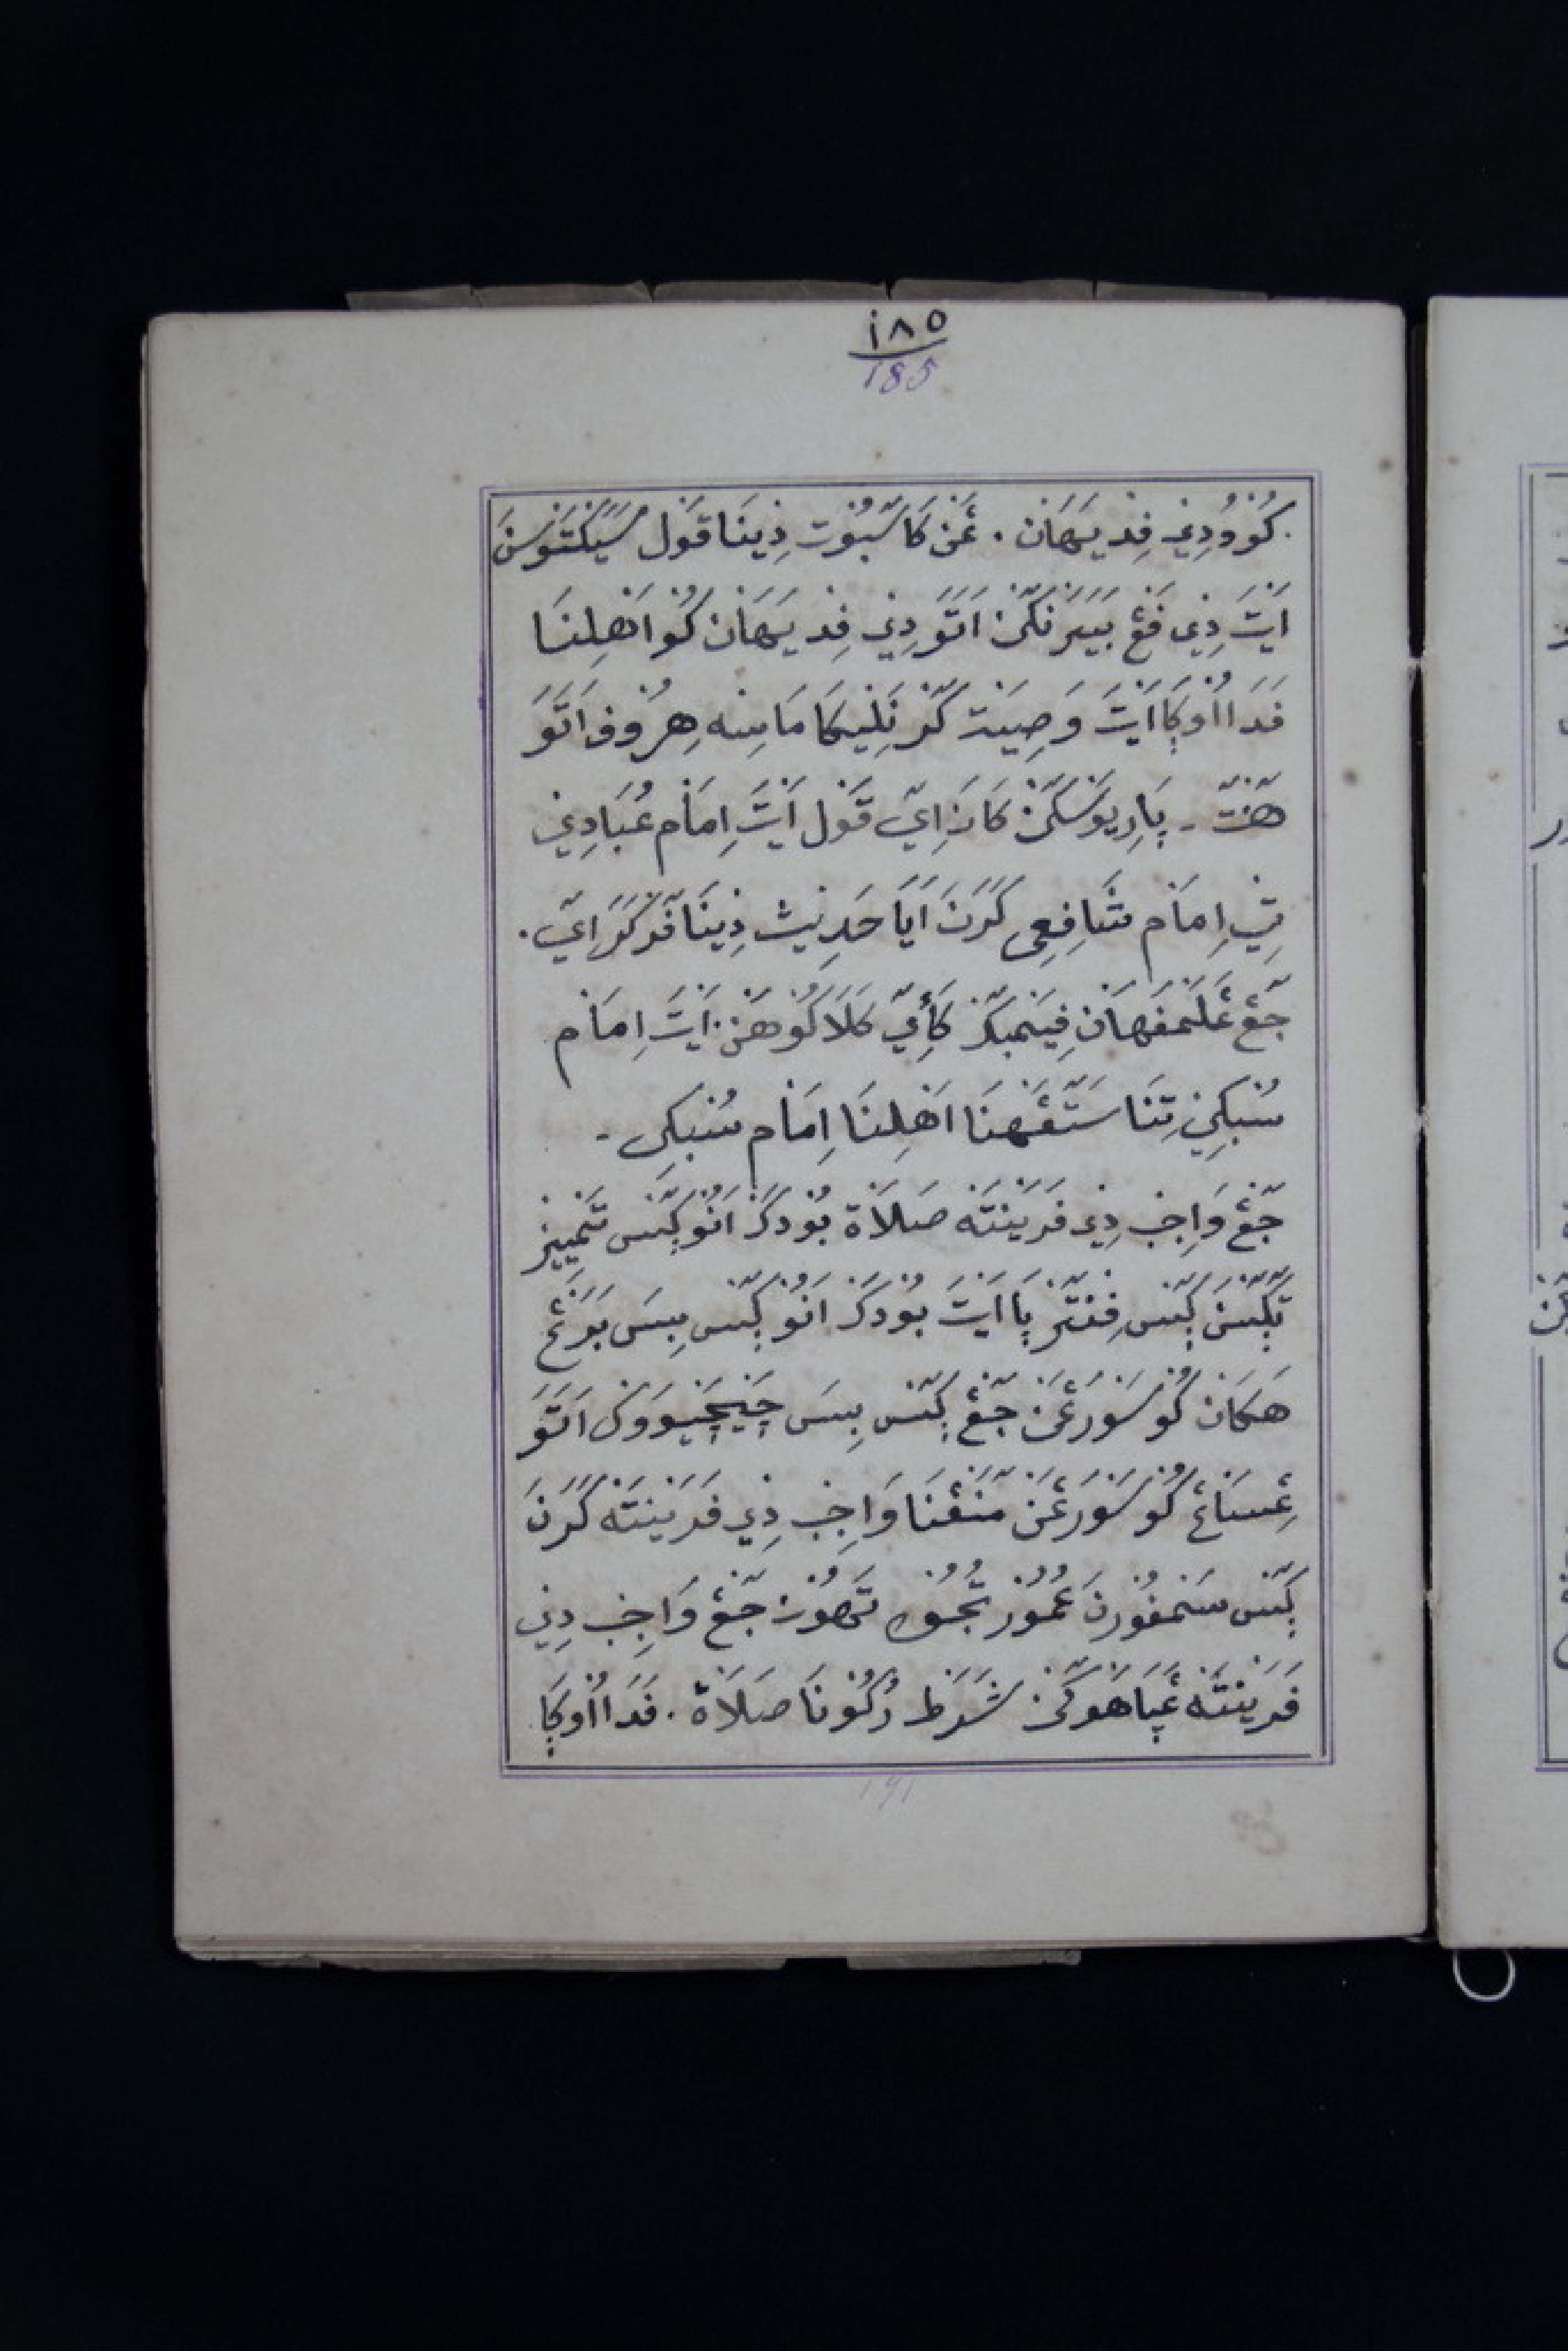 ١٨٥
185
كُوْ وُدِيْ فِدْيَهَانْ. غَنْ كَاسّبُوْت دِيْنَا قَوْل سَيْكْتَوْسَنَ
اَيْتَ دِيْ فَڠْ بَيَرَنْكّنْ اَتَوَ دِيْ فِدْيَهَانْ كُوْ اَهْلِنَا
فَدَا اُوْݢَا اَيْتَ وَصِيَتْ كّرْ نَلِيْكَا مَاسِهْ هِرُوْف اَتَوَ
هَنْتّ - بَارِيَوْسَكّنْ كَانَ اِيّ قَوْل اَيْتَ اِمَامْ عُبَادِيْ
تِيْ اِمَامْ شَافِعِى كَرَنَ اَيَا حَدِيْث دِيْنَا فَرْكَرَ اِيّ.
جّڠْ غَلَمْفَهَانْ فِيَمْبَكّرْ كَأِيّ كَلَاكُوْهَنْ اَيْتَ اِمَامْ
سُبْكِيْ تِنَا سَتّڠَهْنَا اَهْلِنَا اِمَامْ سُبْكِى -
جّڠْ وَاجِبْ دِيْ فَرَيْنْتَهْ صَلَاةْ بُوْدَكْ اَنُوْ ݢّنْس تَمْيِيْزْ
تݢّسْنَ ݢّنْس فِنْتّرْ ݢَا اَيْتَ بُوْدَكْ اَنُوْ ݢّنْس بِسَ بَوَڠْ
هَكَانْ كُوْ سَوْرَغَنْ جّڠْ ݢّنْس بِسَ چَيْچَيْوَوَكْ اَتَوَ
غِسْنَاغْ كُوْ سَوْرَغَنْ مَنّڠْنَا وَاجِبْ دِيْ فَرَيْنْتَهْ كَرَنَ
ݢّنْس سَمْفُوْرْنَ عُمُوْرْ تُجُوْهْ تَهُوْنْ جّڠْ وَاجِبْ دِيْ
فَرَيْنْتَهْ غَݢَاهَوَكّنْ شَرَطْ رُكُوْنَا صَلَاةْ. فَدَا اُوْݢَا
191